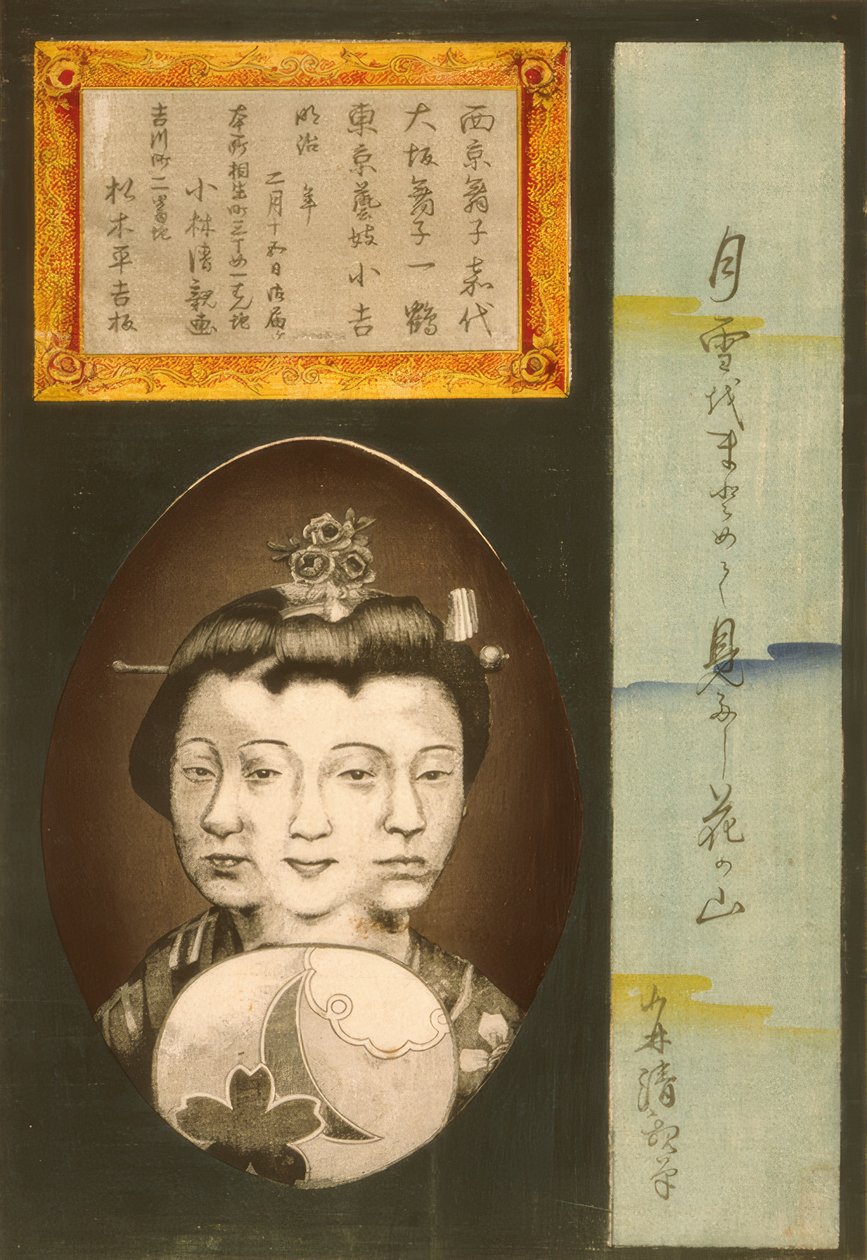 月雪をまとめて見たし花の山
小林清親筆
西京舞子嘉代
大坂舞子一鶴
東京藝妓小吉
明治　年
二月十五日御届ケ
本所相生町三丁め一
小林清親画
吉川町二番地
松木平吉板